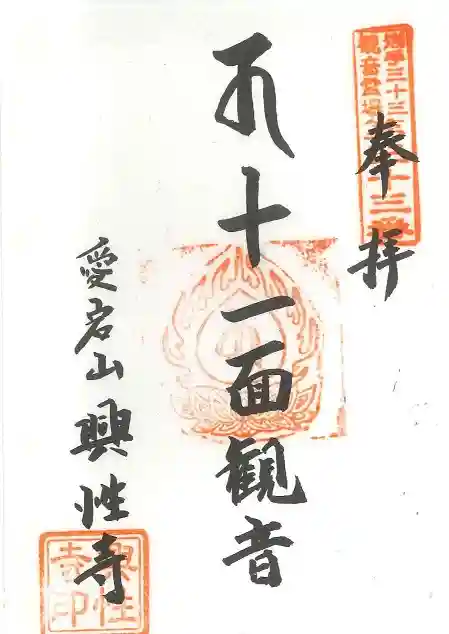 三十三
観音霊場
十三番
奉拝
十一面観音
愛宕山興性寺
興性
寺印